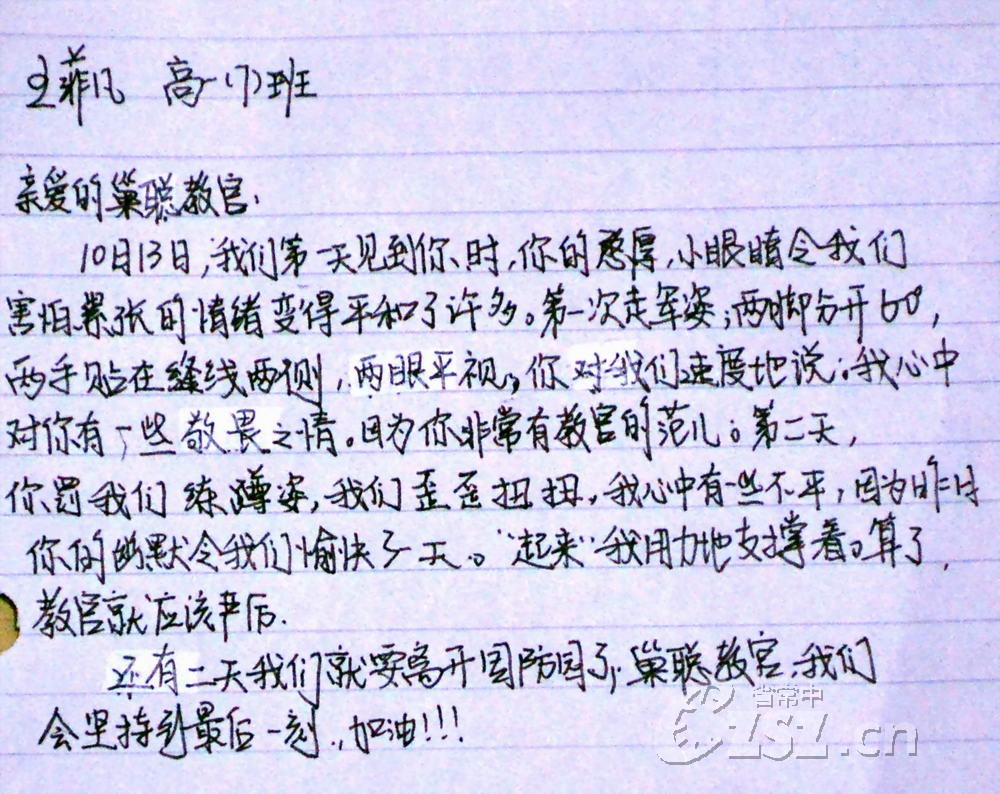 王菲凡 高一(7)班
亲爱的巢聪教官:
10日13日,我们第一天见到你时,你的憨厚,小眼睛令我们
害怕紧张的情绪变得平和了许多。第一次走军姿;两脚分开60°,
两手贴在缝线两侧,两眼平视,你对我们速度地说。我心中
对你有一些敬畏之情。因为你非常有教官的范儿。第二天,
你罚我们练蹲姿,我们歪歪扭扭,我心中有一些不平,因为昨日
你的幽默令我们愉快了一天。"起来"我用力地支撑着。算了,
教官就应该严厉.
还有二天我们就要离开国防园了,巢聪教官,我们
会坚持到最后一刻,加油!!!
省常中
CSZ.cn